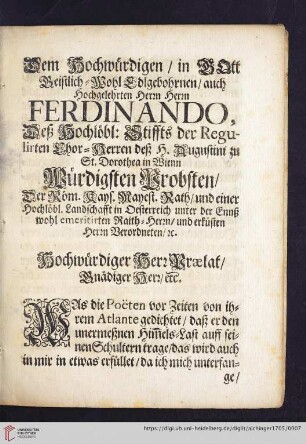 Dem Hochwürdigen / in GOtt
Geistlich-Wohl Edlgebohrnen / auch
Hochgelehrten Herrn Herrn
FERDINANDO,
Deß Hochlöbl: Stiffts der Regu-
lirten Chor-Herren deß H. Augustini zu
St. Dorothea in Wienn
Würdigsten Probsten /
Der Röm. Kays. Mayest. Rath / und einer
Hochlöbl. Landschafft in Oesterreich unter der Ennß
wohl emeritirten Raith-Herrn / und erküsten
Herrn Verordneten / ꝛc.
Hochwürdiger Herꝛ Prælat /
Gnädiger Herꝛ / ꝛc.
WAs die Poëten vor Zeiten von ih-
rem Atlante gedichtet / daß er den
unermeßnen Him̅els-Last auff sei-
nen Schultern trage / das wird auch
in mir in etwas erfüllet / da ich mich unterfan-
ge /
UNIVERSITÄTS-
BIBLIOTHEK
HEIDELBERG
https://digi.ub.uni-heidelberg.de/diglit/aichinger1705/0007